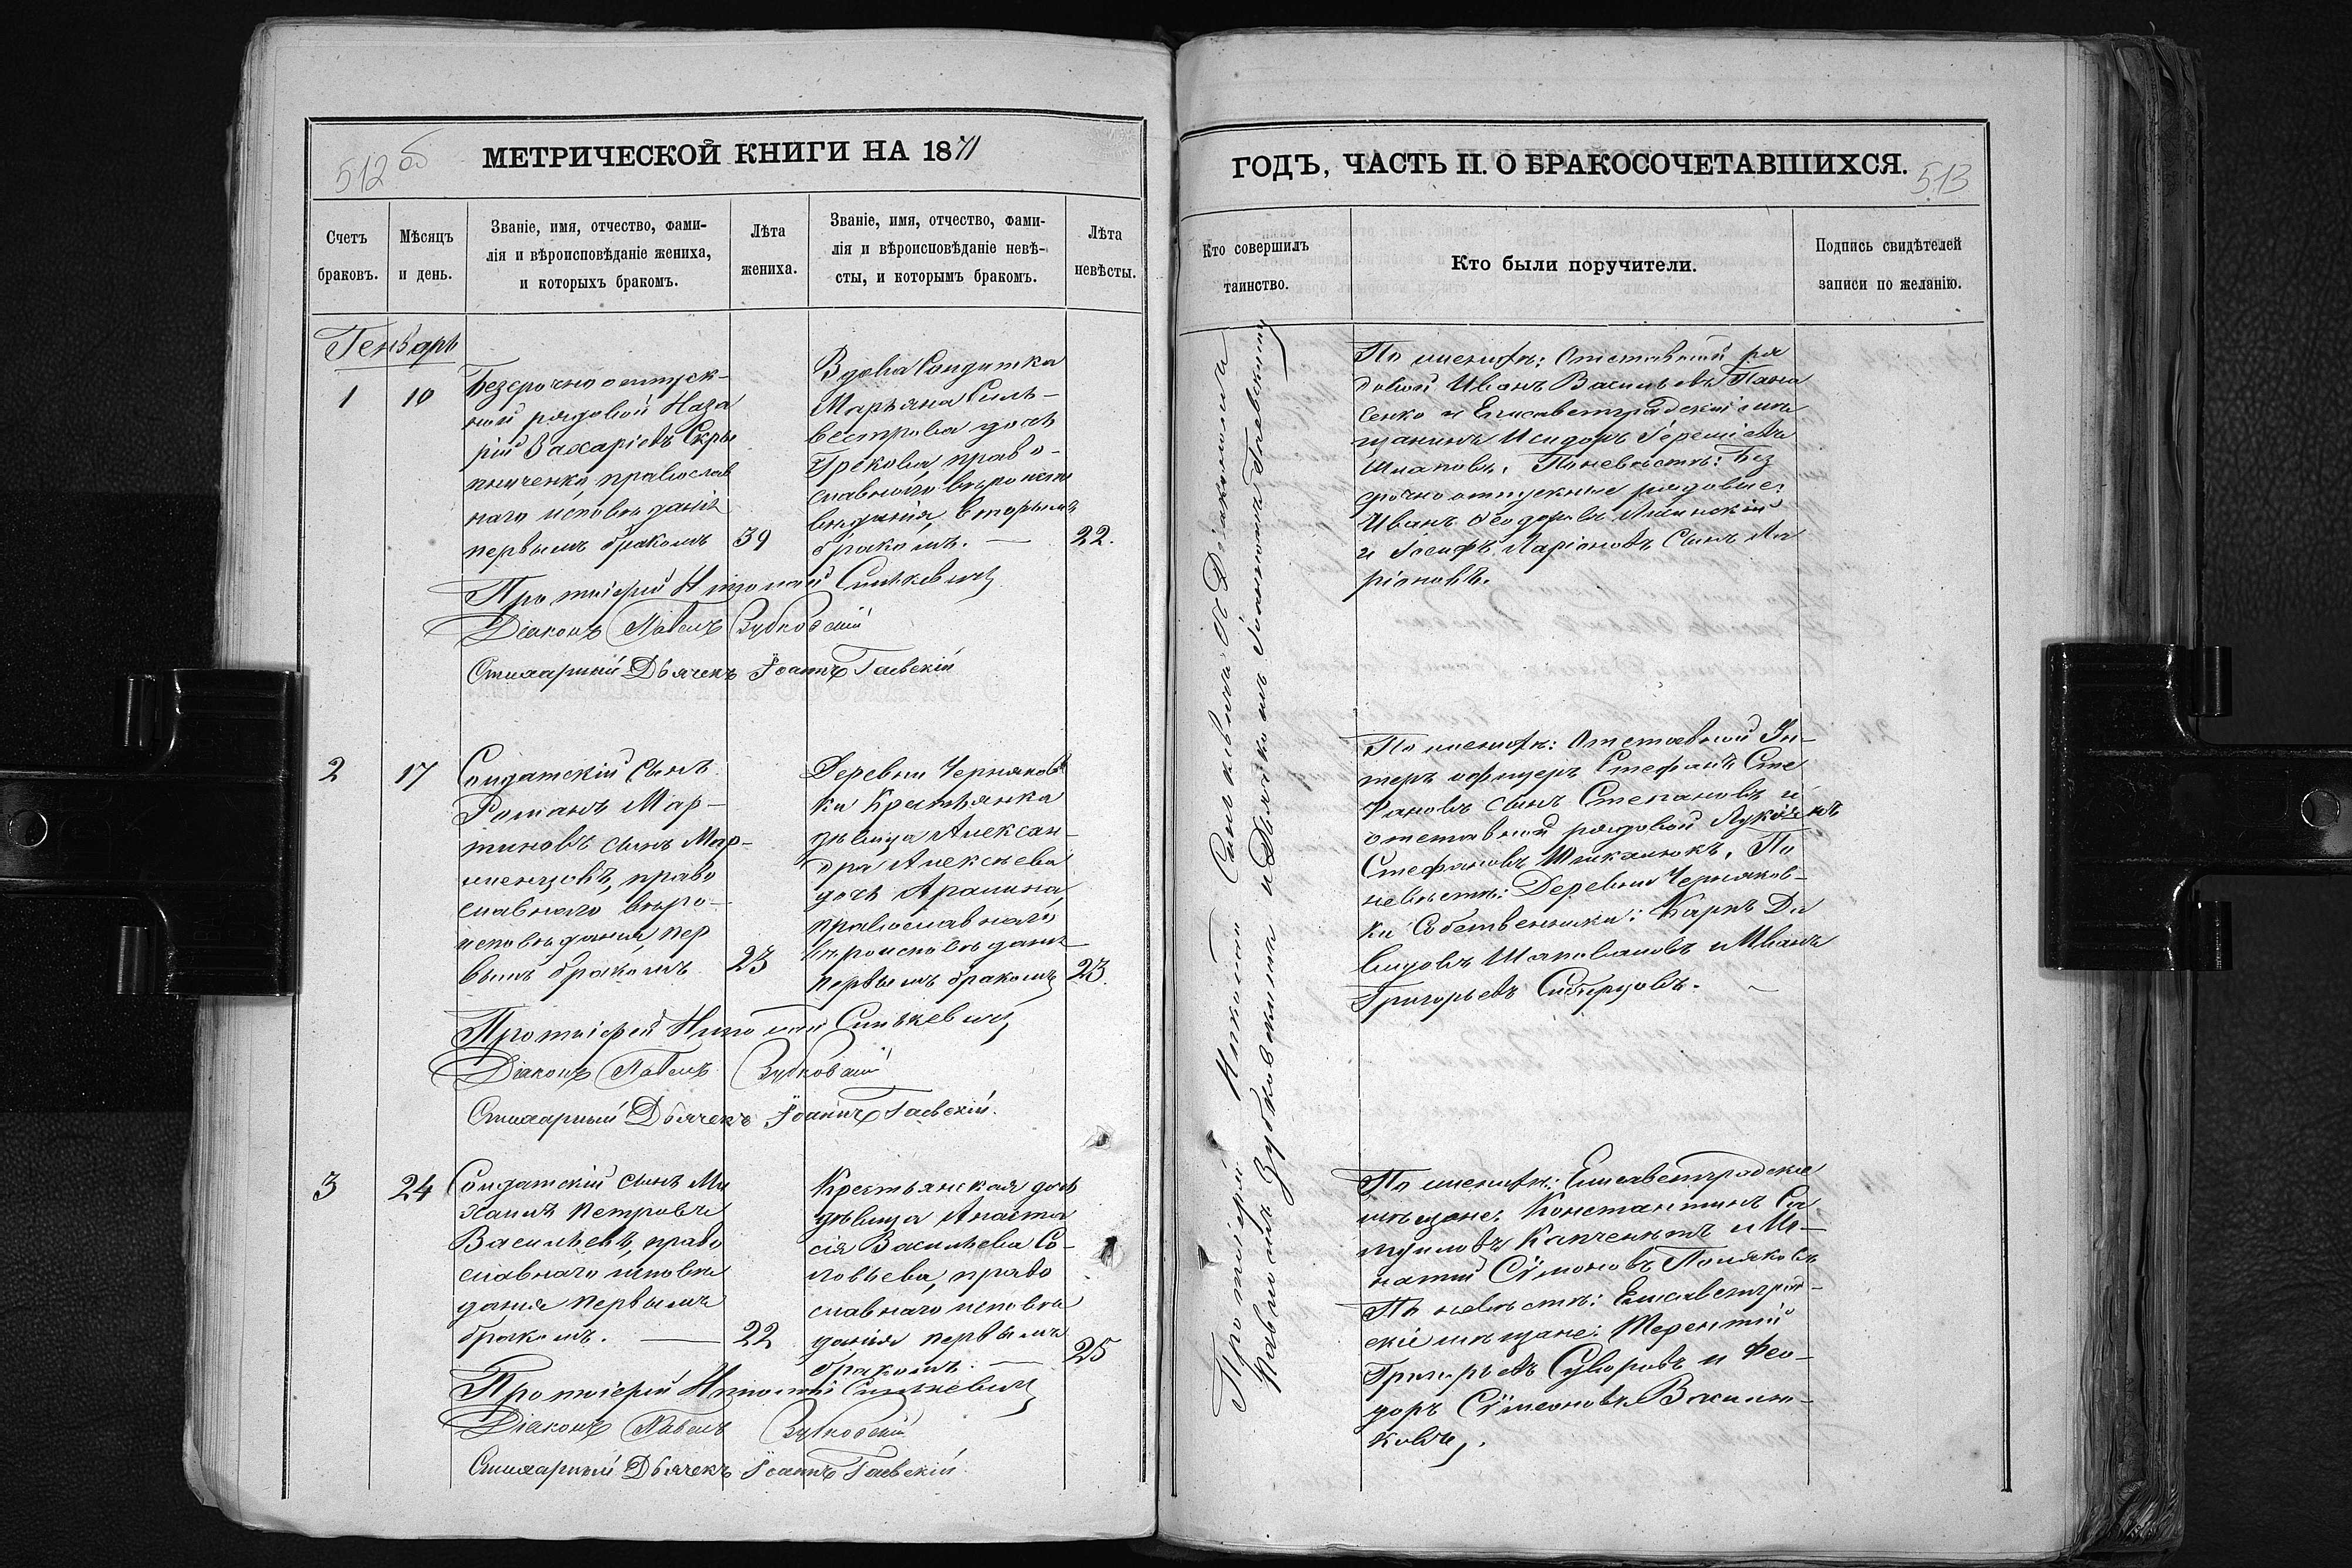 512 об
МЕТРИЧЕСКОЙ КНИГИ НА 1871
Счетъ
браковъ.
Мѣсяцъ
и день.
Званіе, имя, отчество, фами-
лія и вѣроисповѣданіе жениха,
и которыхъ бракомъ.
Лѣта
жениха.
Званіе, имя, отчество, фами-
лія и вѣроисповѣданіе невѣ-
сты, и которымъ бракомъ.
Лѣта
невѣсты.
Генварь
1
10
Безсрочно отпуск-
ной рядовой Наза
рій Захаріевъ Скры
пниченко, православ
наго исповѣданія
первымъ бракомъ
39
Вдова Солдатка
Марьяна Силь-
вестрова дочь
Грекова, право-
славнаго вѣроиспо
вѣданія, вторымъ
бракомъ. —
22.
Протоіерей Николай Синькевичъ
Діаконъ Павелъ Зубковскій
Стихарный Дьячекъ Іоаннъ Гаевскій
2
17
Солдатскій сынъ
Романъ Мар-
тиновъ сынъ Мар-
православнаго вѣро-
исповѣданія, пер
вымъ бракомъ
23
Деревни Черняков
ки Крестьянка
дѣвица Алексан-
дра Алексѣева
дочь
православнаго
вѣроисповѣданія
первымъ бракомъ
23.
Протоіерей Николай Синькевичъ
Діаконъ Павелъ Зубковскій
Стихарный Дьячекъ Іоаннъ Гаевскій.
3
24
Солдатскій сынъ Ми
хаилъ Петровъ
Васильевъ, право
славнаго исповѣ
данія первымъ
бракомъ. —
22
Крестьянская дочь
дѣвица Анаста
сія Васильева Со-
ловьева, право
славнаго исповѣ
данія первымъ
бракомъ. —
25
Протоіерей Николай Синькевичъ
Діаконъ Павелъ Зубковскій
Стихарный Дьячекъ Іоаннъ Гаевскій
ГОДЪ, ЧАСТЬ II. О БРАКОСОЧЕТАВШИХСЯ.
513
Кто совершилъ
таинство.
Кто были поручители.
Подпись свидѣтелей
записи по желанію.
Протоіерей Николай Синькевичъ съ Діакономъ
Павломъ Зубковскимъ и Дьячкомъ Іоанномъ Гаевскимъ
По женихѣ: Отставной ря
довой Иванъ Васильевъ Пана
сенко и Елисаветградскій мѣ
щанинъ Исидоръ Іереміевъ
По невѣстѣ: Без
срочно отпускные рядовые:
Иванъ Ѳеодоровъ
и Іосифъ Ларіоновъ сынъ Ла
ріоновъ.
По женихѣ: Отставной Ун-
теръ офицеръ Стефанъ Сте
фановъ сынъ Степановъ и
отставной рядовой
Стефановъ По
невѣстѣ: Деревни Черняков-
ки Собственники: Карпъ Да
видовъ Шаповаловъ и Иванъ
Григорьевъ
По женихѣ: Елисаветградскіе
мѣщане: Константинъ Са
муиловъ и Иг-
натій Сѵмоновъ Поляковъ
По невѣстѣ: Елисаветград-
скіе мѣщане: Терентій
Григорьевъ Суворовъ и Ѳео-
доръ Сѵмеоновъ Василь-
ковъ.